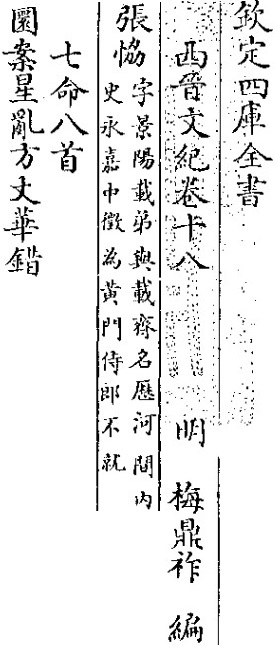 欽定四庫全書
西晉文紀卷十八
明 梅鼎祚 編
張協
字景陽載弟與載齊名歴河間内
史永嘉中徵為黄門侍郎不就
七命八首
圜案星亂方丈華錯